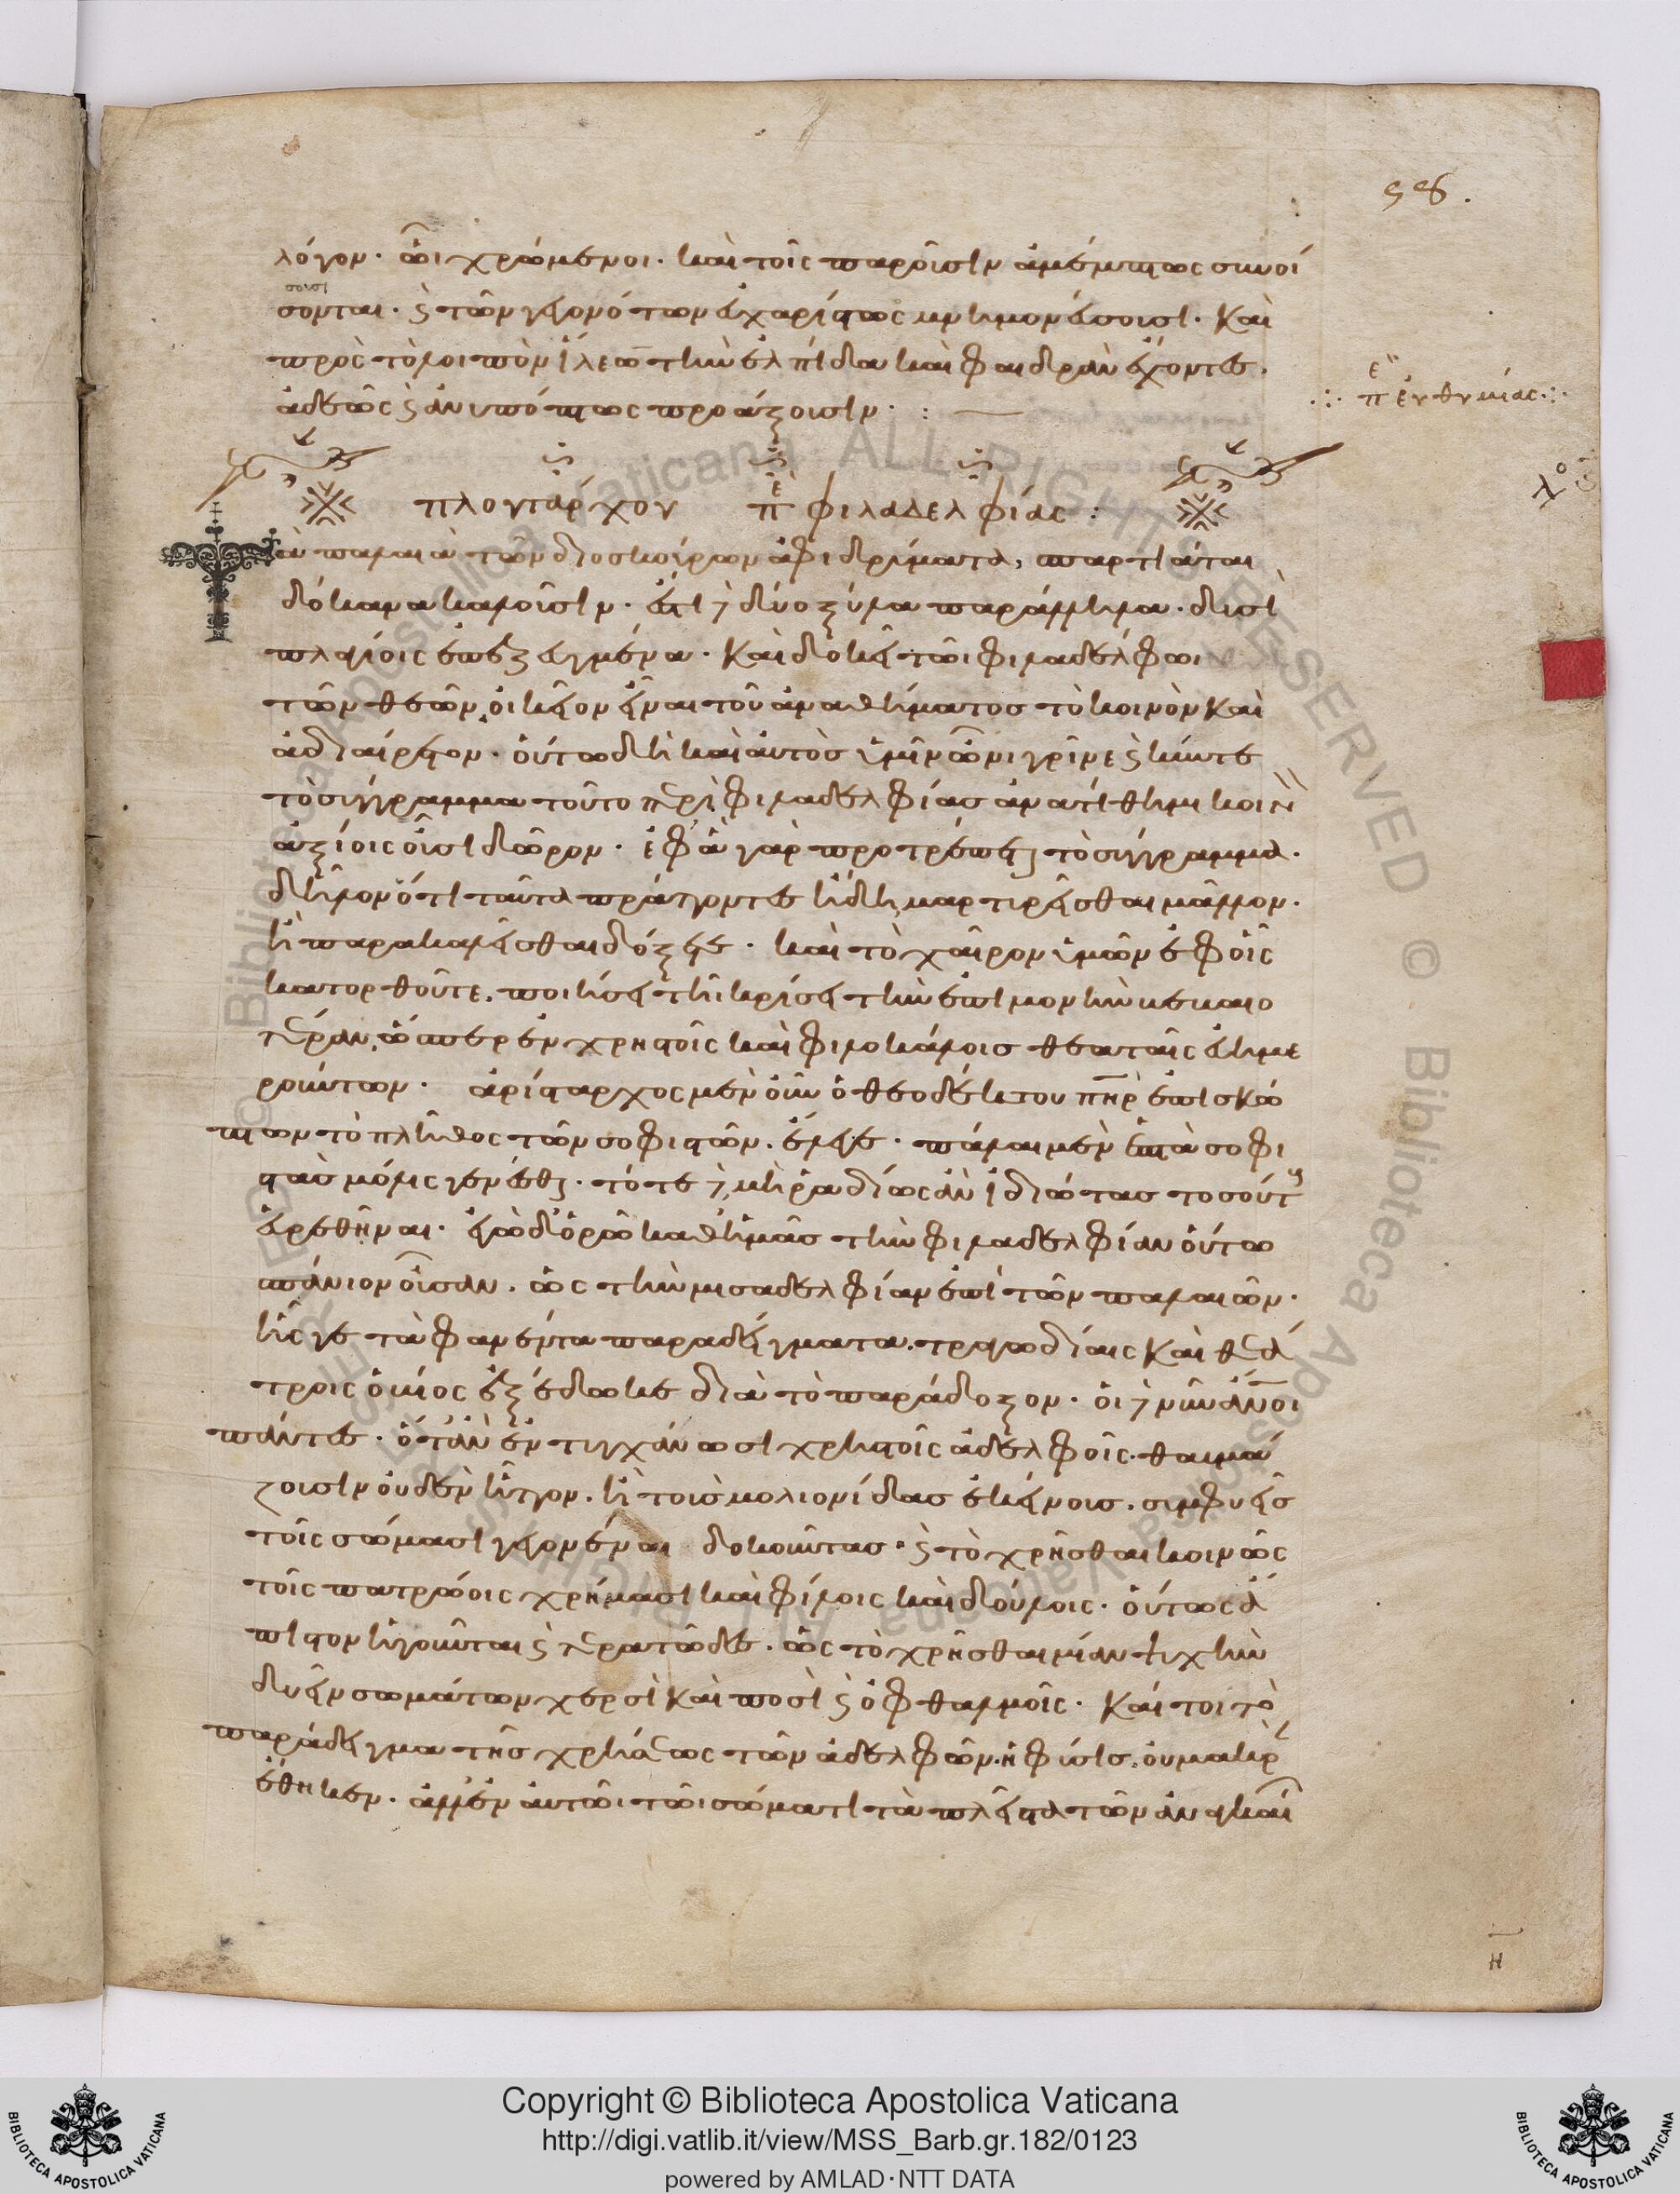 58.
λόγον· ὧι χρώμενοι· καὶ τοῖς παροῦσιν ἀμέμπτως συνοί
σουσι
σονται· καὶ τῶν γεγονότων εὐχαρίστως μνημονεύσουσι· καὶ
πρὸς τὸ λοιπὸν ἵλεω τὴν ἐλπίδα καὶ φαιδρὰν ἔχοντες.
ἀδεῶς καὶ ἀνυπόπτως προάξουσιν· : —
π ε" εὐθυμίας
λο
πλουτάρχου πε φιλαδελφίας :
Τὰ παλαιὰ τῶν διοσκούρων ἀφιδρύματα, σπαρτιάται
δόκανα καλοῦσιν· ἔστι δὲ δύο ξύλα παράλληλα· δυσὶ
πλαγίοις ἐπεζευγμένα· καὶ δοκεῖ τῶι φιλαδέλφωι
τῶν θεῶν, οἰκεῖον εἶναι τοῦ ἀναθήματος τὸ κοινὸν καὶ
ἀδιαίρετον· οὕτω δὴ καὶ αὐτὸς ὑμῖν ὦ νιγρῖνε καὶ κύντε
τὸ σύγγραμμα τοῦτο περὶ φιλαδελφίας ἀνατίθημι κοινὸν
ἀξίοις οὖσι δῶρον· ἐφ' ἃ γὰρ προτρέπεται τὸ σύγγραμμα.
δῆλον ὅτι ταῦτα πράττοντες ἤδη, μαρτυρεῖσθαι μᾶλλον.
ἢ παρακαλεῖσθαι δόξετε· καὶ τὸ χαῖρον ὑμῶν ἐφ' οἷς
κατορθοῦτε. ποιήσει τῆι κρίσει τὴν ἐπιμονὴν βεβαιο
τέραν, ὥσπερ ἐν χρηστοῖς καὶ φιλοκάλοις θεαταῖς εὐημε
ρούντων· ἀρίσταρχος μὲν οὖν ὁ θεοδέκτου πηρ ἐπισκώ
πτων τὸ πλῆθος τῶν σοφιστῶν. ἔλεγε· πάλαι μὲν ἑπτὰ σοφι
στὰς μόλις γενέσθαι· τότε δὲ, μὴ ῥαδίως ἂν ἰδιώτας τοσούτους
εὑρεθῆναι· ἐγὼ δ' ὁρῶ καθ' ἡμᾶς τὴν φιλαδελφίαν οὕτω
σπάνιον οὖσαν. ὡς τὴν μισαδελφίαν ἐπὶ τῶν παλαιῶν·
ἧς γε τὰ φανέντα παραδείγματα. τραγωδίαις καὶ θεά
τροις ὁ βίος ἐξέδωκε διὰ τὸ παράδοξον· οἱ δὲ νῦν ἄνοι
πάντες· ὅταν ἐντυγχάνωσι χρηστοῖς ἀδελφοῖς· θαυμά
ζουσιν οὐδὲν ἧττον. ἢ τοὺς μολιονίδας ἐκείνους. συμφυεῖς
τοῖς σώμασι γεγονέναι δοκοῦντας· καὶ τὸ χρῆσθαι κοινῶς
τοῖς πατρώοις χρήμασι καὶ φίλοις καὶ δούλοις· οὕτως ἄ
πιστον ἡγοῦνται καὶ τερατῶδες. ὡς τὸ χρῆσθαι μίαν ψυχὴν
δυεῖν σωμάτων χερσὶ καὶ ποσὶ καὶ ὀφθαλμοῖς· καίτοι τὸ
παράδειγμα τῆς χρήσεως τῶν ἀδελφῶν. ἡ φύσις. οὐ μακρὰν
ἔθηκεν· ἀλλ' ἐν αὐτῶι τῶι σώματι τὰ πλεῖστα τῶν ἀναγκαί
η
Copyright © Biblioteca Apostolica Vaticana
http://digi.vatlib.it/view/MSS_Barb.gr.182/0123
powered by AMLAD·NTT DATA
BIBLIOTECA APOSTOLICA VATICANA
BIBLIOTECA APOSTOLICA VATICANA